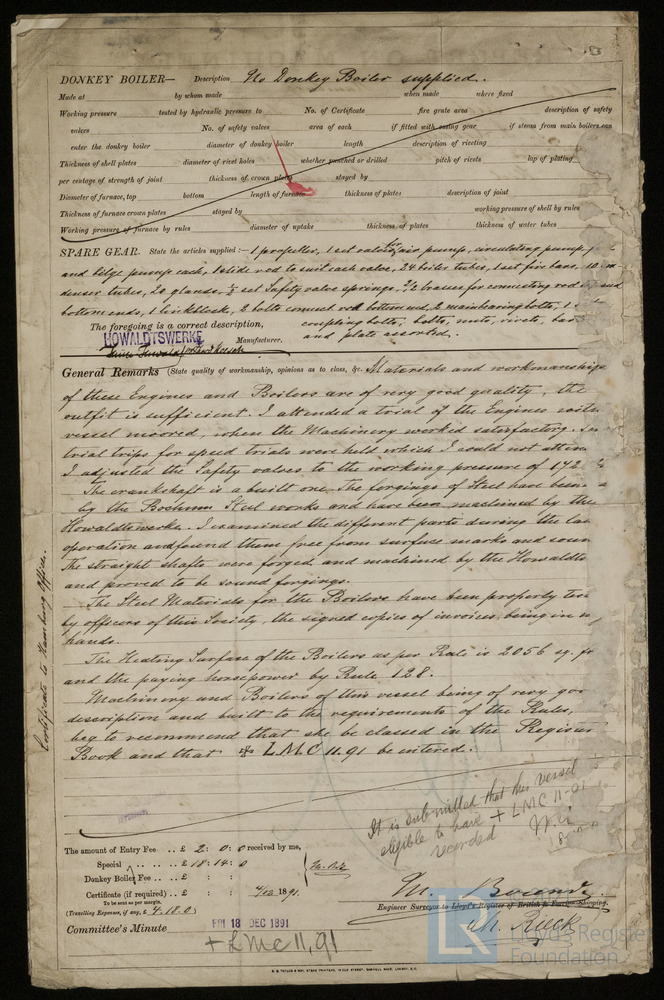 DONKEY BOILER— Description No Donkey Boiler supplied.
Made at by whom made when made where fixed
Working pressure tested by hydraulic pressure to No. of Certificate fire grate area description of safety
valves No. of safety valves area of each if fitted with easing gear if steam from main boilers can
enter the donkey boiler diameter of donkey boiler length description of riveting
Thickness of shell plates diameter of rivet holes whether punched or drilled pitch of rivets lap of plating
per centage of strength of joint thickness of crown plates stayed by
Diameter of furnace, top bottom length of furnace thickness of plates description of joint
Thickness of furnace crown plates stayed by working pressure of shell by rules
Working pressure of furnace by rules diameter of uptake thickness of plates thickness of water tubes
SPARE GEAR. State the articles supplied:— 1 propeller, 1 set valves for air pump, circulating pump,
and bilge pump each, 1 slide rod to suit each valve, 24 boiler tubes, 1 set fire bars, 10
denser tubes, 20 glands, ½ set Safety valve springs, 2/2 brasses for connecting rod and
bottom ends, 1 link block, 2 bolts connect rod bottom end, 2 main bearing bolts, 1
coupling bolts, bolts, nuts, rivets, bar
and plate assorted.
The foregoing is a correct description,
HOWALDTSWERKE
Manufacturer.
General Remarks (State quality of workmanship, opinions as to class, &c. Materials and workmanship
of these Engines and Boilers are of very good quality, the
outfit is sufficient. I attended a trial of the Engines with
vessel moored, when the Machinery worked satisfactory.
trial trips for speed trials were held which I could not atten
I adjusted the Safety valves to the working pressure of 142
The crankshaft is a built one. The forgings of Steel have been
by the Bochum Steel works and have been machined by the
Howaldtswerke. I examined the different parts during the
operation and found them free from surface marks and soun
The straight shafts were forged and machined by the Howaldts
and proved to be sound forgings.
The Steel Materials for the Boilers have been properly tes
by officers of this Society, the signed copies of invoices being in m
hands.
The Heating Surface of the Boilers as per Rule is 2056 sq. f
and the paying horsepower by Rule 128.
Machinery and Boilers of this vessel being of very goo
description and built to the requirements of the Rules,
beg to recommend that she be classed in the Register
Book and that ✠ LMC 11.91 be entered.
Certificate to Hamburg Office.
It is submitted that this vessel
eligible to have + LMC 11-91
recorded
The amount of Entry Fee .. £ 2 : 0 : 0 received by me,
Special .. .. .. £ 18 : 14 : 0
Donkey Boiler Fee .. .. £ : :
Certificate (if required) .. £ : : 4/12 1891.
To be sent as per margin.
(Travelling Expenses, if any, £ 4.18.0)
Engineer Surveyor to Lloyd's Register of British & Foreign Shipping.
Ch. Rieck
Committee's Minute FRI 18 DEC 1891
+ LMC 11,91
LR
Lloyd's Register
Foundation